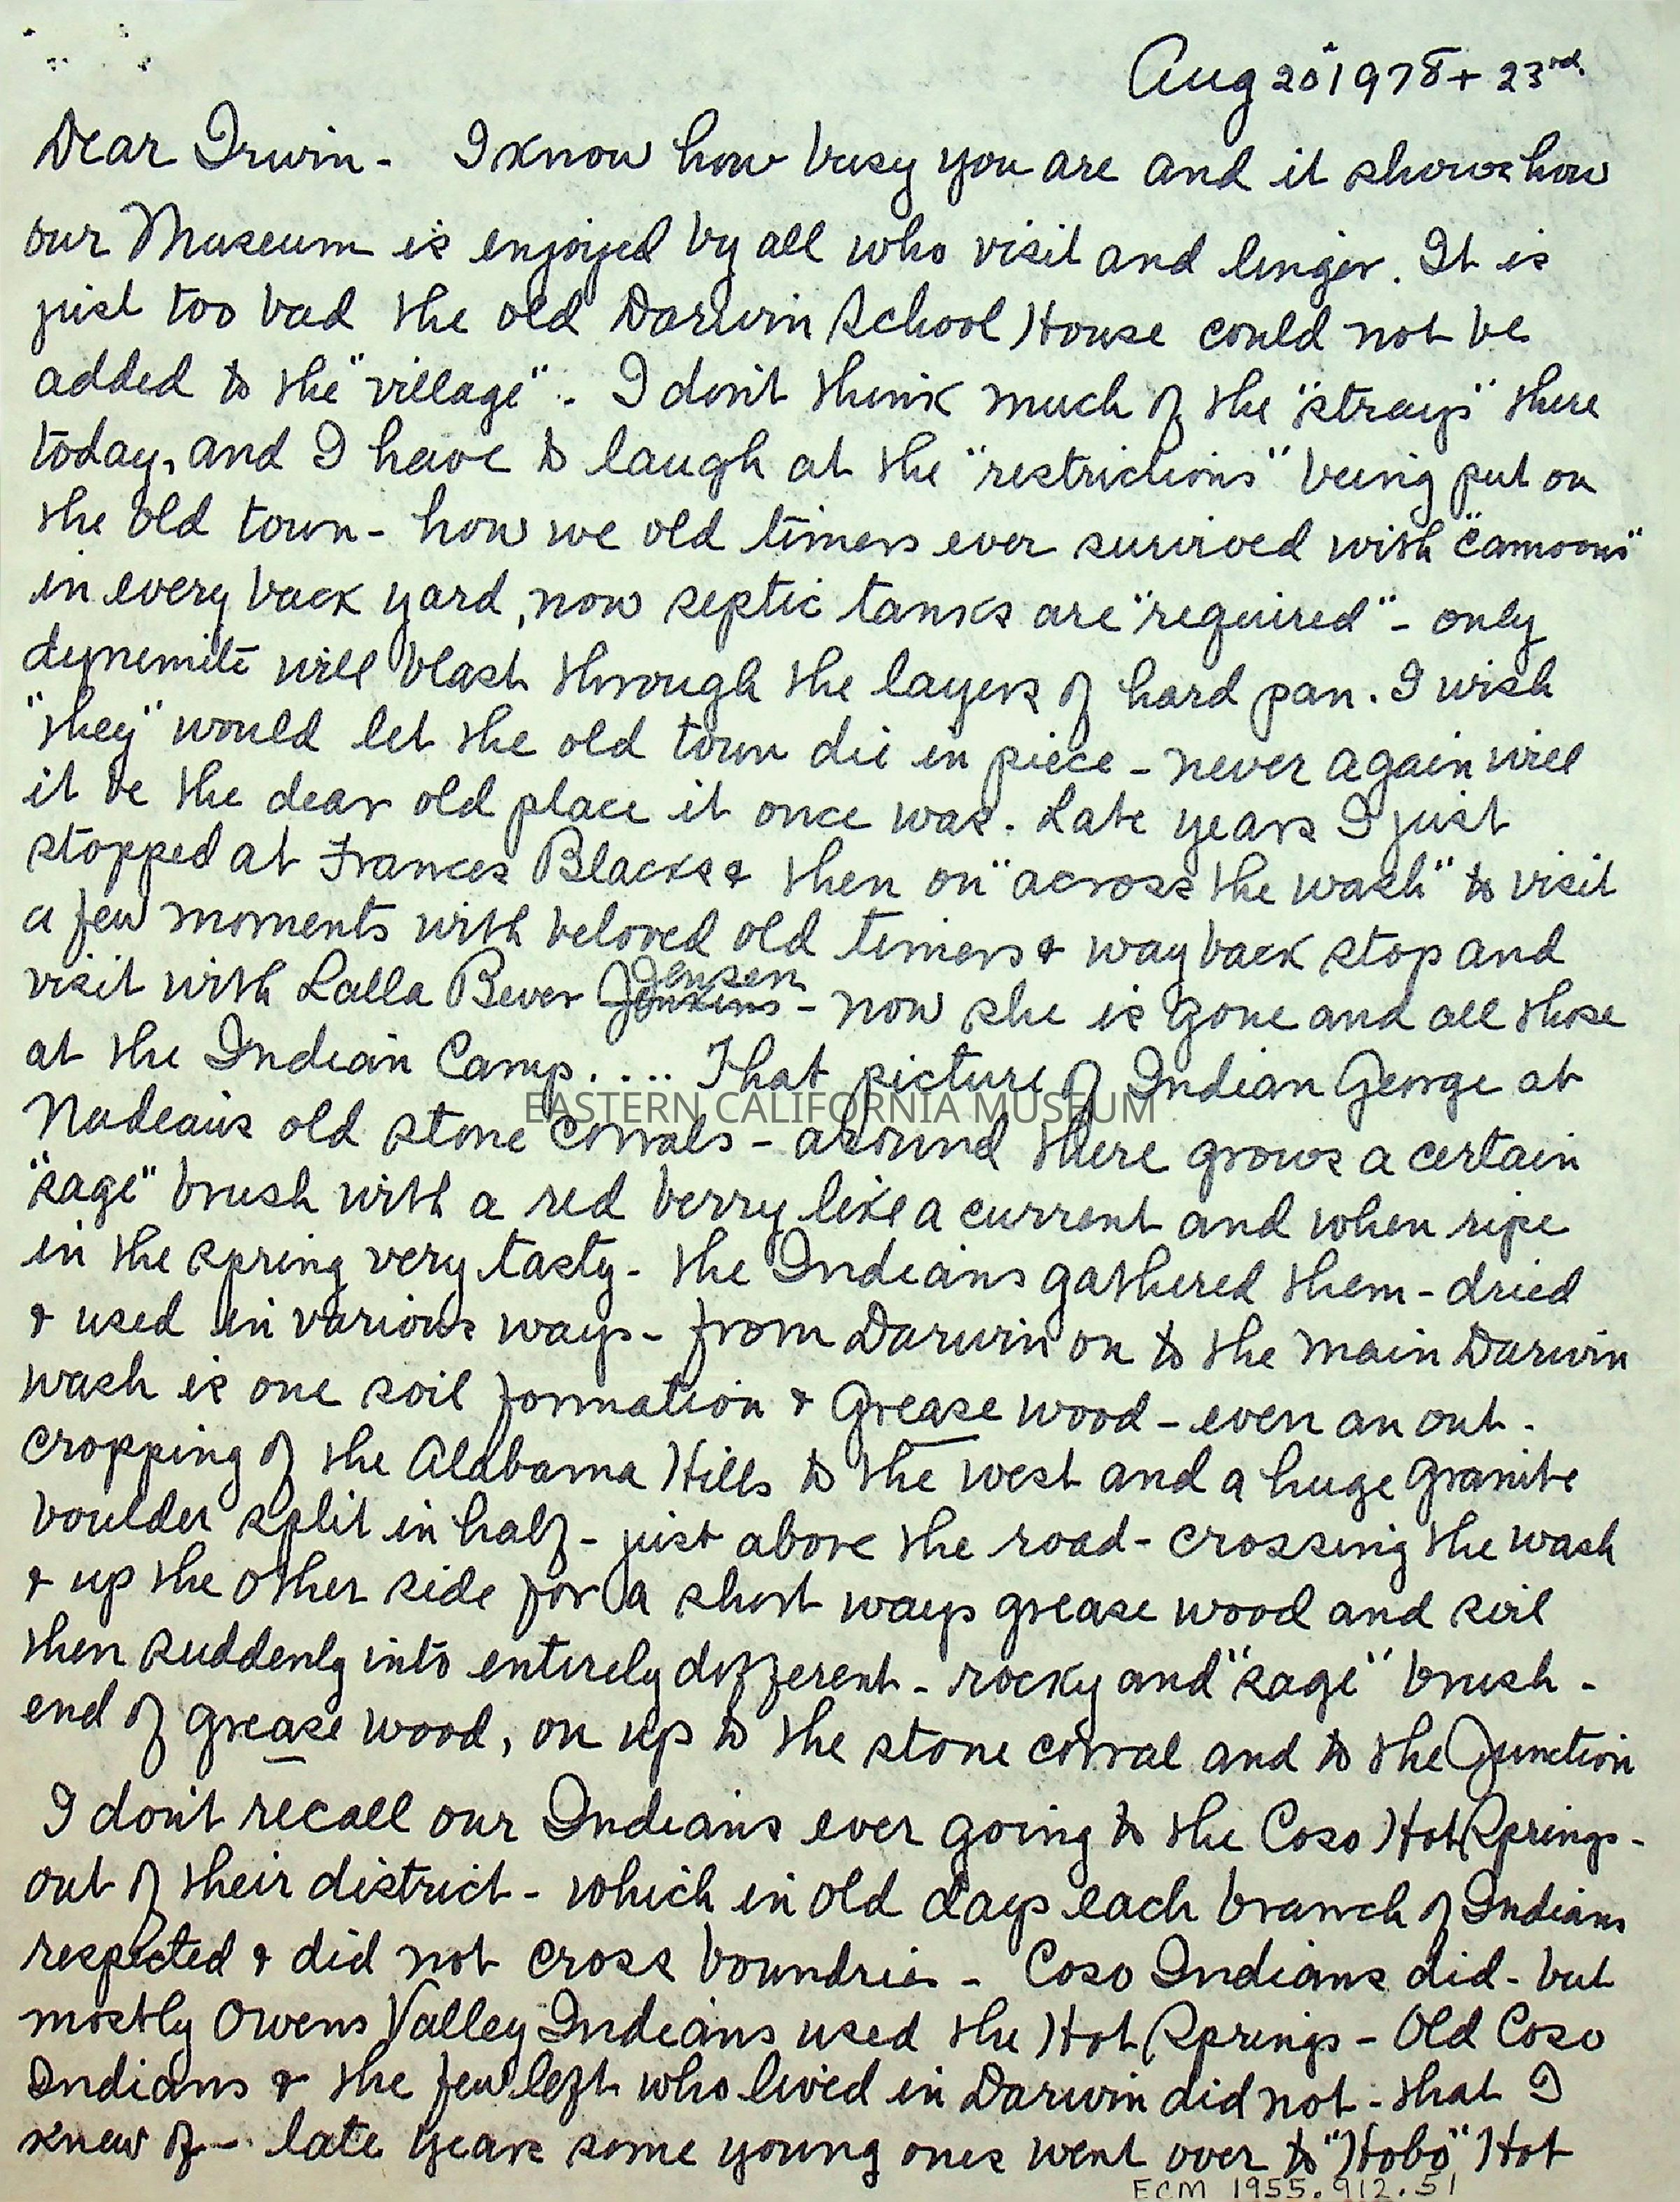 Aug 20 1978 + 23rd.
Dear Irwin - I know how busy you are and it shows how
our Museum is enjoyed by all who visit and linger. It is
just too bad the old Darwin School House could not be
added to the "village". I don't think much of the "strays" there
today, and I have to laugh at the "restrictions" being put on
the old town - how we old timers ever survived with
in every back yard, now septic tanks are "required" - only
dynemite will blast through the layers of hard pan. I wish
"they" would let the old town die in piece - never again will
it be the dear old place it once was. Late years I just
stopped at Frances Blacks & then on "across the wash" to visit
a few moments with beloved old timers & way back stop and
visit with Lalla Bever Jenkins Jensen - now she is gone and all those
at the Indian Camp.... That picture of Indian George at
Nadeaus old stone corrals - around there grows a certain
EASTERN CALIFORNIA MUSEUM
"sage" brush with a red berry like a current and when ripe
in the spring very tasty - the Indians gathered them - dried
& used in various ways - from Darwin on to the main Darwin
wash is one soil formation & Grease wood - even an out -
cropping of the Alabama Hills to the west and a huge granite
boulder split in half - just above the road - crossing the wash
& up the other side for a short ways grease wood and soil
then suddenly into entirely different - rocky and "sage" brush -
end of grease wood, on up to the stone corral and to the Junction
I don't recall our Indians ever going to the Coso Hot Springs -
out of their district - which in old days each branch of Indians
respected & did not cross boundries - Coso Indians did - but
mostly Owens Valley Indians used the Hot Springs - Old Coso
Indians & the few left who lived in Darwin did not - that I
knew of - late years some young ones went over to "Hobo" Hot
ECM 1955.912.51